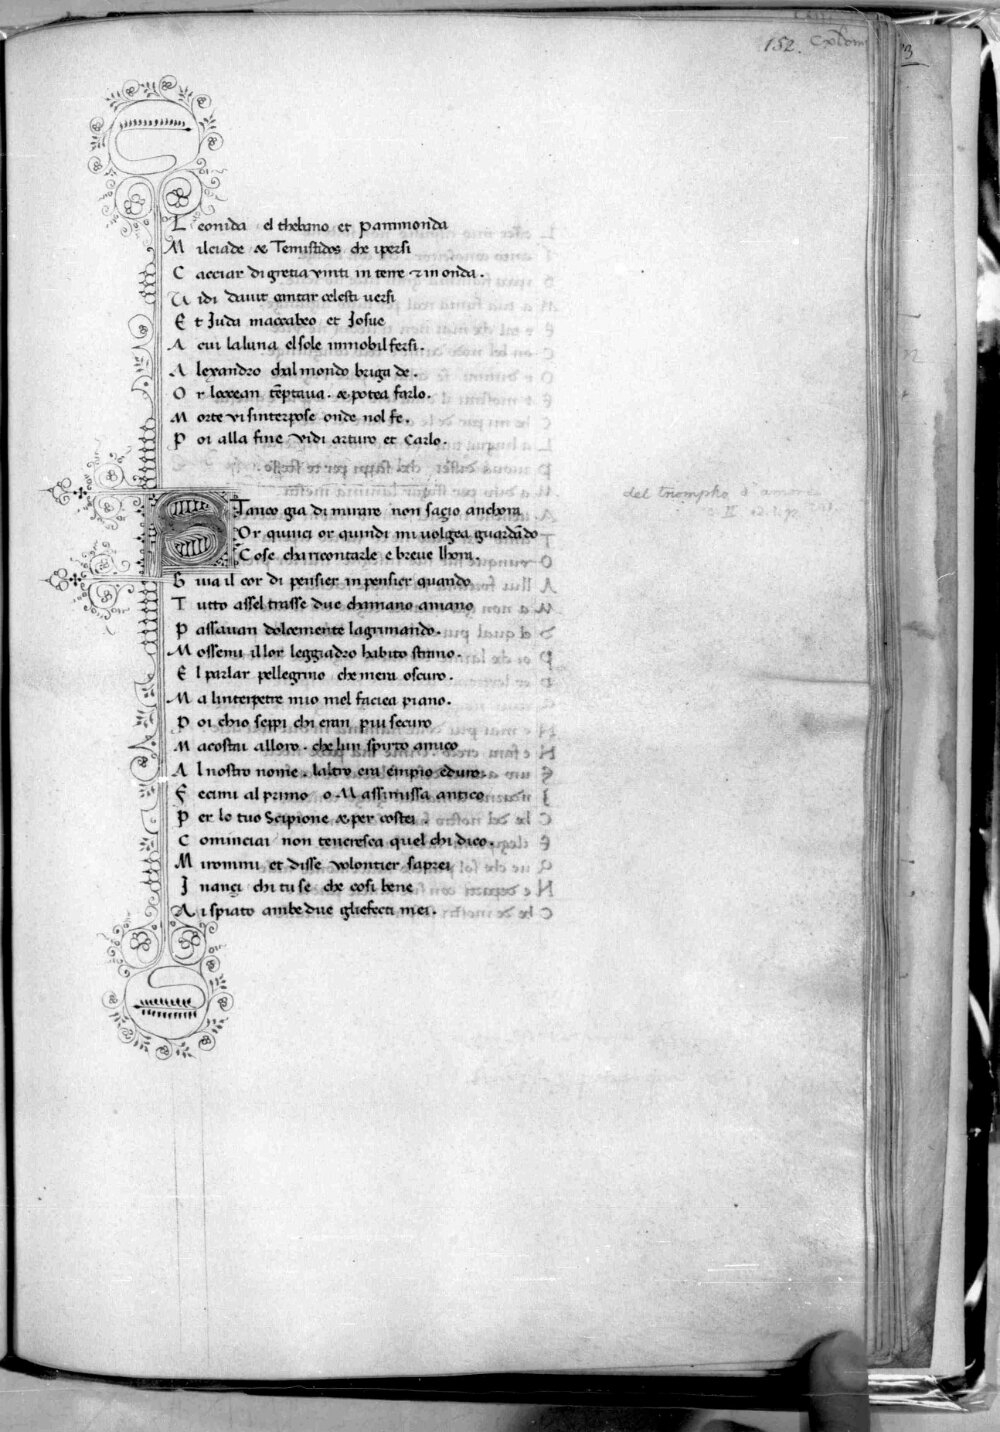 152.
L eonida el thebano et paminonda
M ilciade & Temistidos che ipersi
C acciar di gretia vinti in terre ⁊ in onda.
U idi dauit cantar celesti uersi
E t Juda maccabeo et Josue
A cui laluna elsole inmobil fersi.
A lexandro chal mondo briga de.
O r loccean tẽptaua. & potea farlo.
M orte vi sinterpose onde nol fe.
P oi alla fine vidi arturo et Carlo.
S Tanco gia di mirare non saçio anchora
Or quinci or quindi mi uolgea guardãdo
Cose cha ricontarle e breue lhora.
G iua il cor di pensier in pensier quando
T utto assel trasse due chamano amano
P assauan dolcemente lagrimando.
M ossemi il lor leggiadro habito strano.
E l parlar pellegrino che mera oscuro.
M a linterpetre mio mel faciea piano.
P oi chio seppi chi eran piu securo
M acostai alloro. che lun spirto amico
A l nostro nome. laltro era empio eduro.
F ecimi al primo o Massinissa antico
P er lo tuo Scipione & per costei.
C ominciai non tencresca quel chi dico.
M irommi et disse volontier saprei
J nançi chi tu se che cosi bene
A i spiato ambe due gliefecti mei.
del triompho d' amore
II